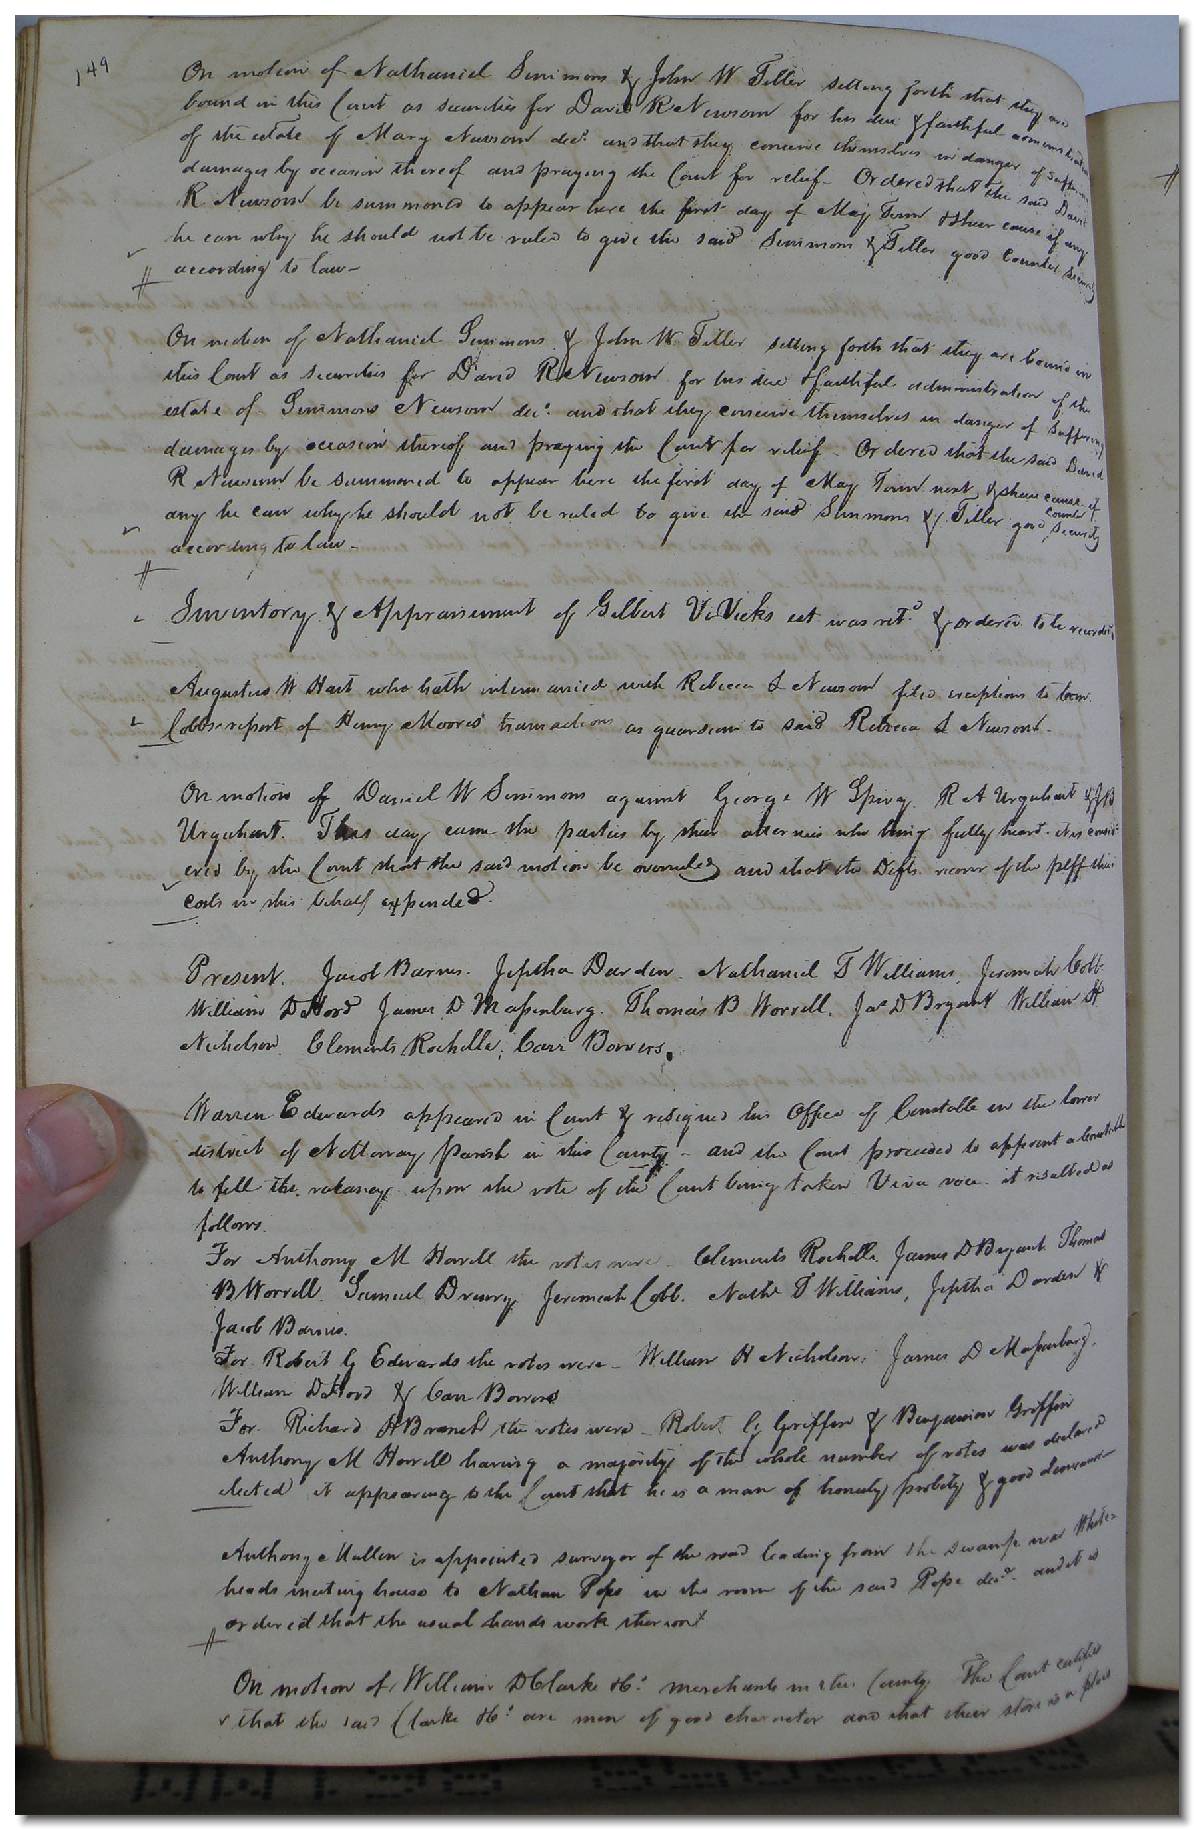 149
On motion of Nathaniel Simmons & John W Teller setting forth that they are
bound in this Court as securities for David R Newsom for his due & faithful administration
of the estate of Mary Newsom decd. and that they conceive themselves in danger of suffering
damages by occasion thereof and praying the Court for relief. Ordered that the said David
R Newsom be summoned to appear here the first day of May Term & shew cause if any
he can why he should not be ruled to give the said Simmons & Teller good Counter security
according to law -
On motion of Nathaniel Simmons & John W Teller setting forth that they are bound in
this Court as securities for David R Newsom for his due & faithful administration of the
estate of Simmons Newsom decd. and that they conceive themselves in danger of suffering
damages by occasion thereof and praying the Court for relief. Ordered that the said David
R Newsom be summoned to appear here the first day of May Term next & shew cause if
any he can why he should not be ruled to give the said Simmons & Teller good counter security
according to law -
Inventory & Appraisement of Gilbert Vicks est was retd & ordered to be recorded
Augustus W Hart who hath intermarried with Rebecca S Newsom filed exceptions to
Cobbs report of Henry Moores transactions as guardian to said Rebecca S Newsom.
On motion of Daniel W Simmons against George W Spivy R A Urquhart & J B
Urquhart. This day came the parties by their attornies who being fully heard - it is consid
ered by the Court that the said motion be overruled and that the Defts. recover of the plff their
costs in this behalf expended.
Present. Jacob Barnes. Jeptha Darden. Nathaniel T Williams. Jeremiah Cobb.
William D Hood James D Massenburg. Thomas B Worrell. Jas D Bryant William H
Nicholson Clements Rochelle, Carr Bowers.
Warren Edwards appeared in Court & resigned his Office of Constable in the lower
district of Nottoway Parish in this County - and the Court proceeded to appoint a Constable
to fill the vacancy upon the vote of the Court being taken Viva voce it resulted as
follows.
For Anthony M Howell the votes were Clements Rochelle James D Bryant Thomas
B Worrell. Samuel Drewry Jeremiah Cobb. Nathl T Williams, Jeptha Darden &
Jacob Barnes.
For Robert G Edwards the votes were - William H Nicholson, James D Massenburg,
William D Hood & Carr Bowers
For Richard H Branch the votes were - Robert G Griffin & Benjamin Griffin
Anthony M Howell having a majority of the whole number of votes was declared
elected it appearing to the Court that he is a man of honesty probity & good demeanor
Anthony Mullen is appointed surveyor of the road leading from the swamp near White
heads meeting house to Nathan Pope in the room of the said Pope decd. and it is
ordered that the usual hands work thereon
On motion of William D Clarke & Co. merchants in the County The Court certifies
that the said Clarke & Co. are men of good character and that their store is a place